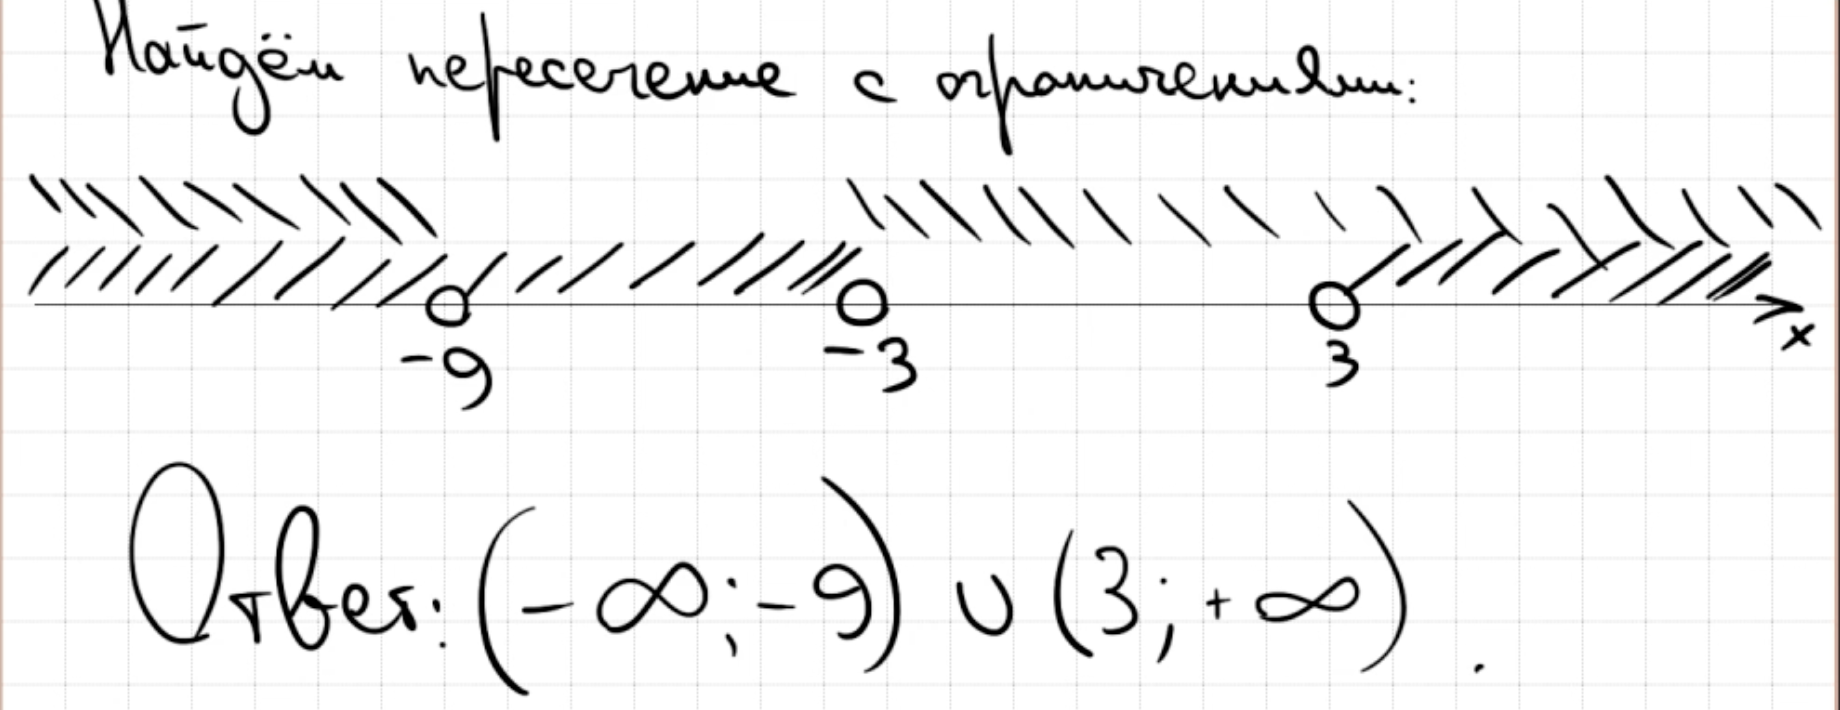 Найдём пересечение с ограничениями:
-9 -3 3 x
Ответ: (-∞; -9) ∪ (3; +∞).